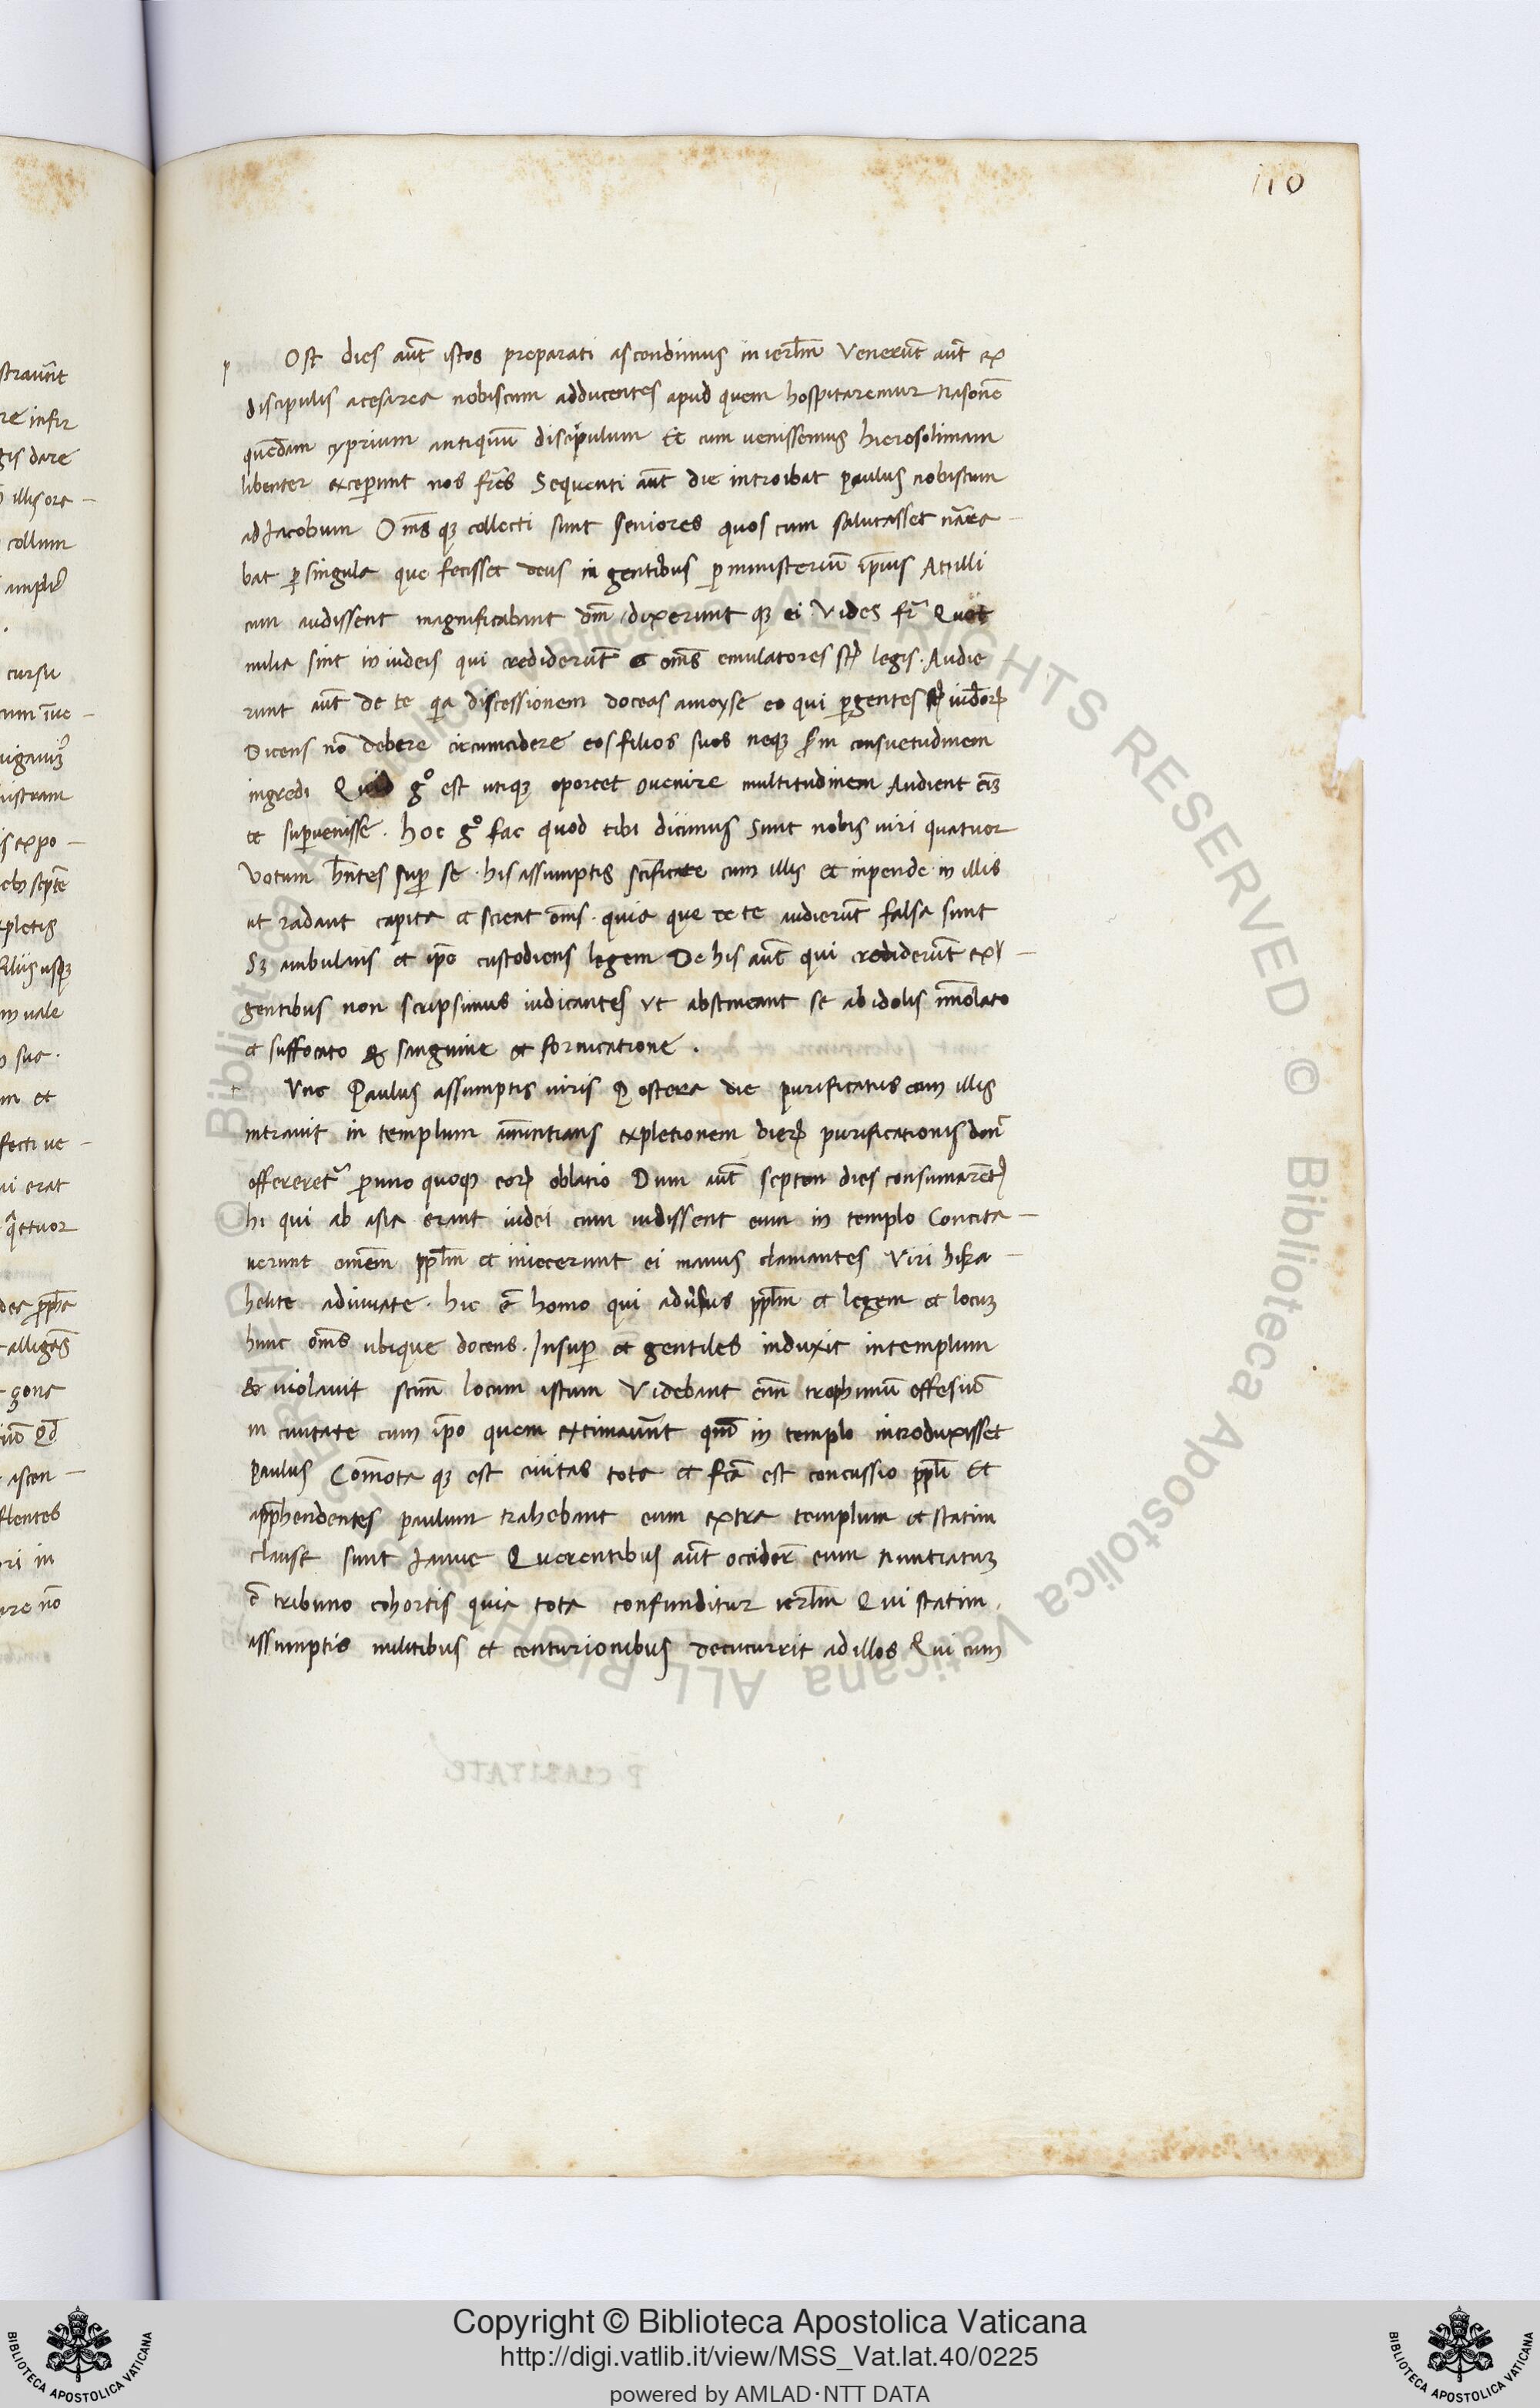 110
p Ost dies aũt istos preparati ascendimus in ierl̃m Venerũt aũt ex
discipulis acesarea nobiscum adducentes apud quem hospitaremur nasonẽ
quẽdam cyprium antiquũ discipulum Et cum uenissemus hierosolimam
libenter exceperunt nos fr̃es Sequenti aũt die introibat paulus nobiscum
ad Iacobum Om̃s qꝫ collecti sunt seniores quos cum salutasset nãrra-
bat ꝑ singula que fecisset deus in gentibus ꝑ ministeriũ ip̃ius At illi
cum audissent magnificabant dm̃ dixerunt qꝫ ei Vides fr̃ Quot
milia sint in iudeis qui crediderũt et om̃s emulatores st̃ legis. Audie
runt aũt de te qia discessionem doceas amoyse eo qui ꝑ gentes st̃ iudeoꝝ
Dicens nõ debere circumcidere eos filios suos neqꝫ scd̃m consuetudinem
ingredi Quid gº est utiqꝫ oportet ꝯuenire multitudinem Audient em̃
te superuenisse. hoc gº fac quod tibi dicimus Sunt nobis uiri quatuor
Votum hñtes suꝑ se. his assumptis sc̃ifica te cum illis et inpende in illis
ut radant capita et scieat om̃s. quia que de te audierũt falsa sunt
Sꝫ ambulans et ip̃e custodiens legem De his aũt qui crediderũt ex-
gentibus non scripsimus iudicantes Vt abstineant se ab idolis im̃olato
et suffocato & sanguine et fornicatione.
t Vnc Paulus assumptis uiris Postera die purificatus cum illis
intrauit in templum anũntians expletionem dierꝝ purificationis don̄
offereret̃ ꝓ uno quoqꝫ eoꝝ oblatio Dum aũt septem dies consumarẽt̃
hi qui ab asia erant iudei cum uidissent eum in templo Concita-
uerunt omnẽm ppl̃m et iniecerunt ei manus clamantes Viri hisra-
helite adiuuate. hic ẽ homo qui adũsus ppl̃m et legem et locum
hunc om̃s ubique docens. Insuꝑ et gentiles induxit in templum
& uiolauit scm̃ locum istum Videbant em̃ trophimũ effesiũ
in ciuitate cum ip̃o quem extimauer̃nt qm̃ in templo introduxisset
Paulus Com̃ota qꝫ est ciuitas tota et fc̃a est concussio ppl̃i Et
app̃hendentes paulum trahebant eum extra templum et statim
clause sunt Ianue Querentibus aũt occider̃ eum nuntiatum
ẽ tribuno cohortis quia tota confunditur ierl̃m Qui statim.
assumptis militibus et centurionibus decucurrit ad illos Qui cum
Copyright © Biblioteca Apostolica Vaticana
http://digi.vatlib.it/view/MSS_Vat.lat.40/0225
powered by AMLAD·NTT DATA